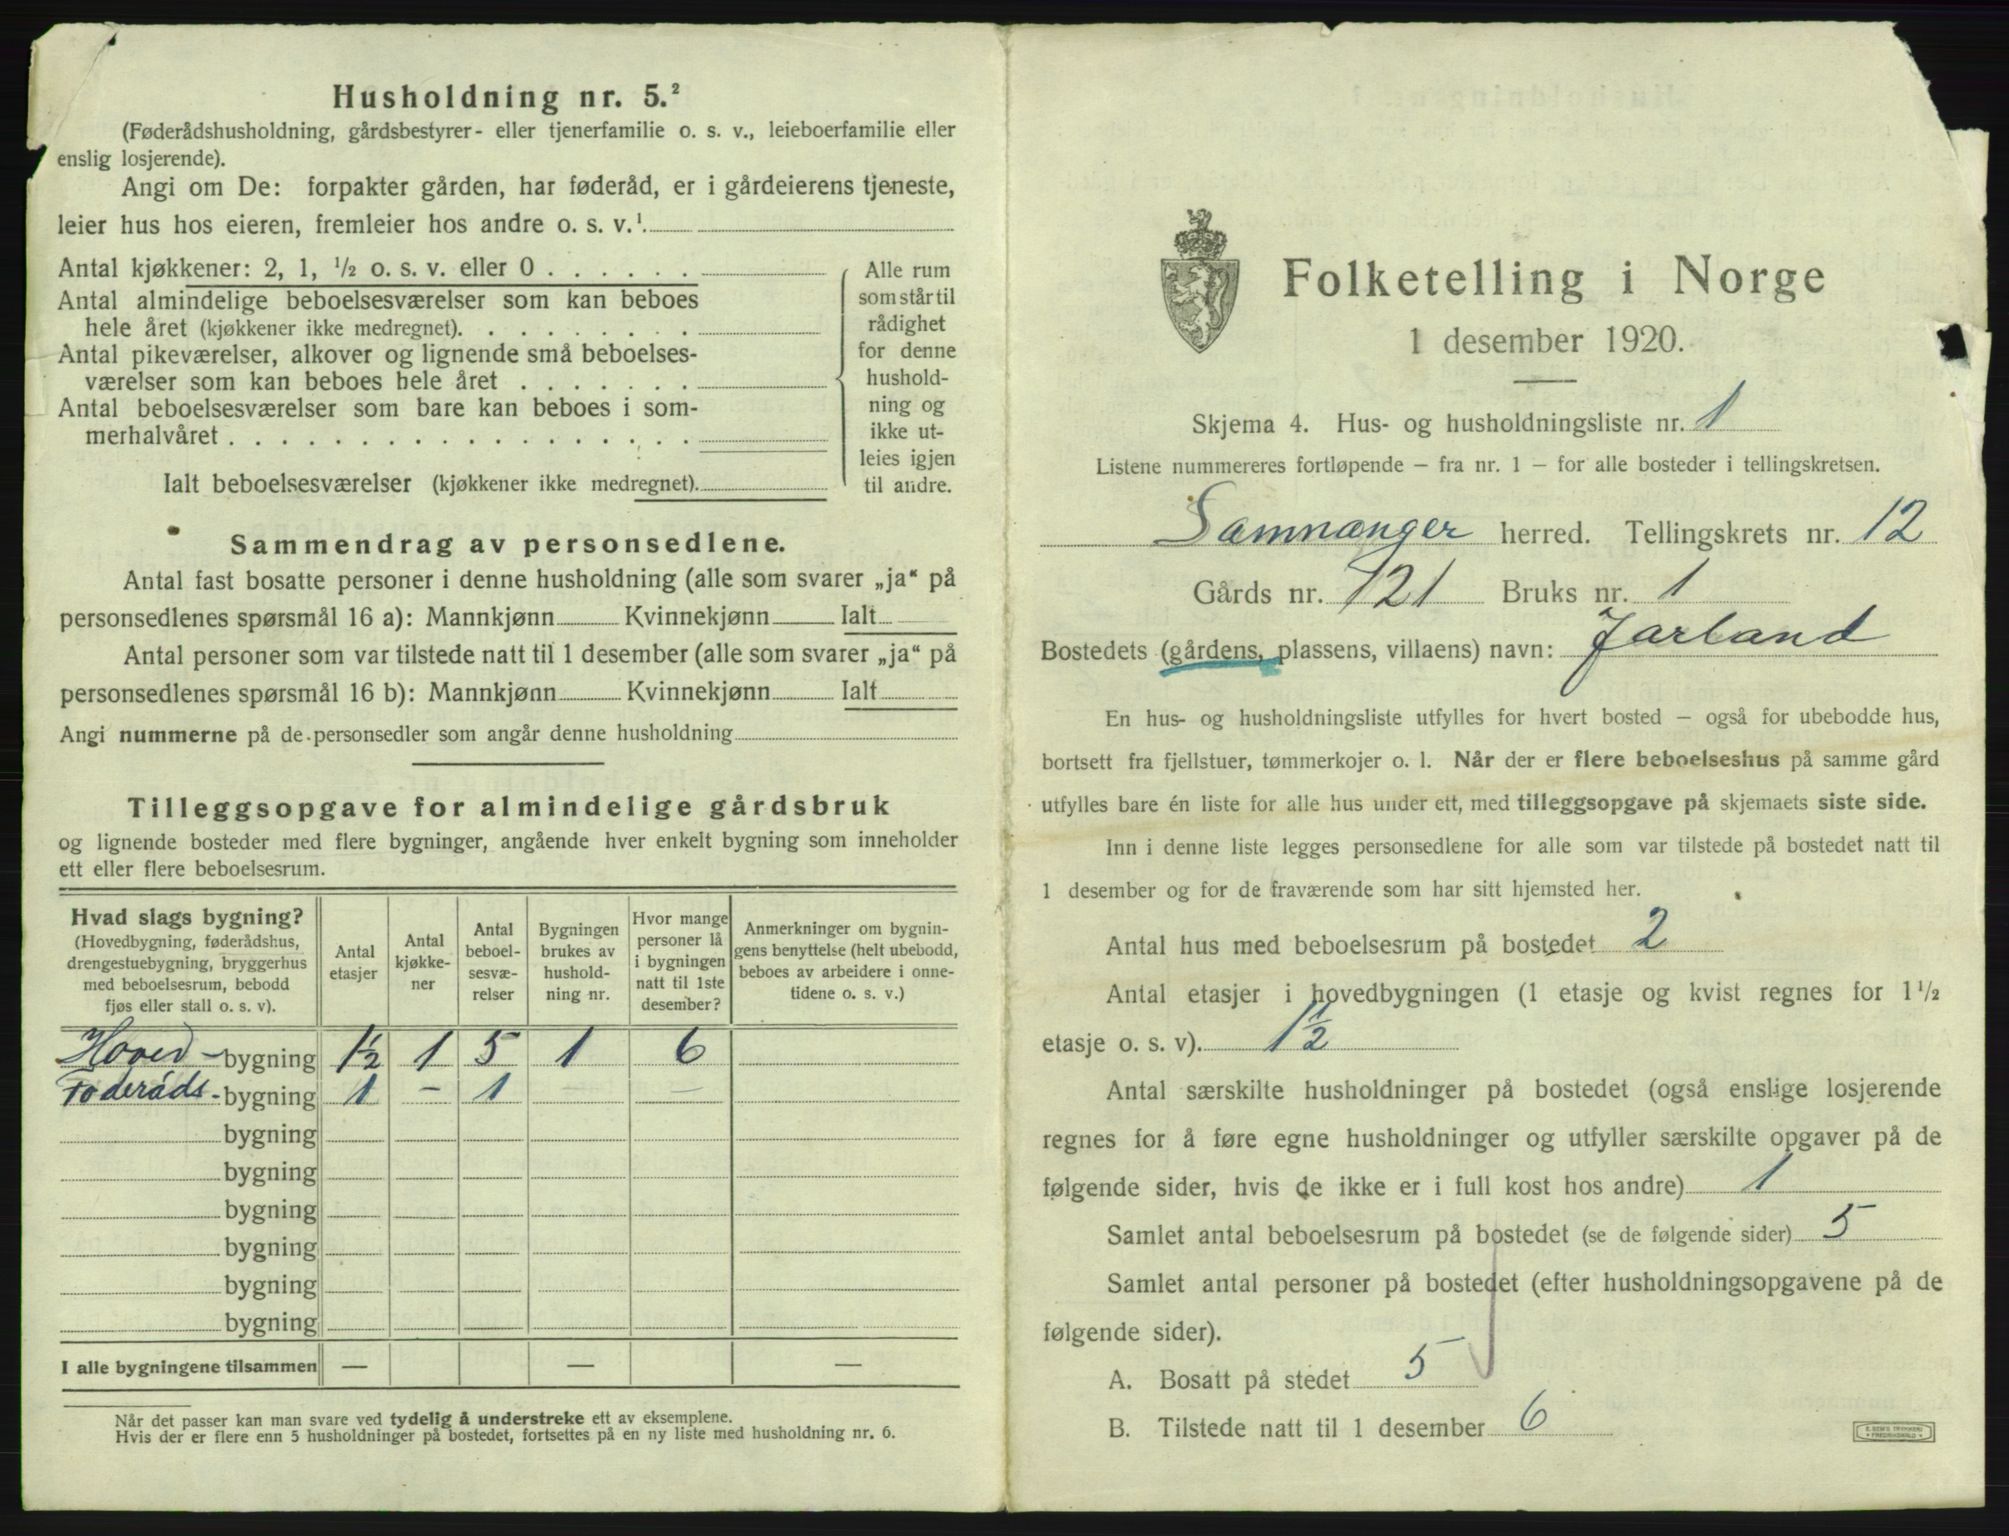 Husholdning nr. 5.²
(Føderådshusholdning, gårdsbestyrer- eller tjenerfamilie o. s. v., leieboerfamilie eller
enslig losjerende).
Angi om De: forpakter gården, har føderåd, er i gårdeierens tjeneste,
leier hus hos eieren, fremleier hos andre o. s. v.¹
Antal kjøkkener: 2, 1, ½ o. s. v. eller 0 . . . . . .
Antal almindelige beboelsesværelser som kan beboes
hele året (kjøkkener ikke medregnet). . . . . . . . .
Antal pikeværelser, alkover og lignende små beboelses-
værelser som kan beboes hele året . . . . . . .
Antal beboelsesværelser som bare kan beboes i som-
merhalvåret . . . . . . . . . . . . . . . . . .
Ialt beboelsesværelser (kjøkkener ikke medregnet).
Alle rum
som står til
rådighet
for denne
hushold-
ning og
ikke ut-
leies igjen
til andre.
Sammendrag av personsedlene.
Antal fast bosatte personer i denne husholdning (alle som svarer „ja“ på
personsedlenes spørsmål 16 a): Mannkjønn Kvinnekjønn Ialt
Antal personer som var tilstede natt til 1 desember (alle som svarer „ja“ på
personsedlenes spørsmål 16 b): Mannkjønn Kvinnekjønn Ialt
Angi nummerne på de personsedler som angår denne husholdning
Tilleggsopgave for almindelige gårdsbruk
og lignende bosteder med flere bygninger, angående hver enkelt bygning som inneholder
ett eller flere beboelsesrum.
Hvad slags bygning?
(Hovedbygning, føderådshus,
drengestuebygning, bryggerhus
med beboelsesrum, bebodd
fjøs eller stall o. s. v).
Antal
etasjer
Antal
kjøkke-
ner
Antal
beboel-
sesvæ-
relser
Bygningen
brukes av
hushold-
ning nr.
Hvor mange
personer lå
i bygningen
natt til 1ste
desember?
Anmerkninger om bygnin-
gens benyttelse (helt ubebodd,
beboes av arbeidere i onne-
tidene o. s. v.)
Hoved-bygning 1½ 1 5 1 6
Føderåds-bygning 1 - 1 - -
bygning
bygning
bygning
bygning
bygning
bygning
I alle bygningene tilsammen — — —
Når det passer kan man svare ved tydelig å understreke ett av eksemplene.
Hvis der er flere enn 5 husholdninger på bostedet, fortsettes på en ny liste med husholdning nr. 6.
Folketelling i Norge
1 desember 1920.
Skjema 4. Hus- og husholdningsliste nr. 1
Listene nummereres fortløpende — fra nr. 1 — for alle bosteder i tellingskretsen.
Samnanger herred. Tellingskrets nr. 12
Gårds nr. 121 Bruks nr. 1
Bostedets (gårdens, plassens, villaens) navn: Jarland
En hus- og husholdningsliste utfylles for hvert bosted — også for ubebodde hus,
bortsett fra fjellstuer, tømmerkojer o. l. Når der er flere beboelseshus på samme gård
utfylles bare én liste for alle hus under ett, med tilleggsopgave på skjemaets siste side.
Inn i denne liste legges personsedlene for alle som var tilstede på bostedet natt til
1 desember og for de fraværende som har sitt hjemsted her.
Antal hus med beboelsesrum på bostedet 2
Antal etasjer i hovedbygningen (1 etasje og kvist regnes for 1½
etasje o. s. v). 1½
Antal særskilte husholdninger på bostedet (også enslige losjerende
regnes for å føre egne husholdninger og utfyller særskilte opgaver på de
følgende sider, hvis de ikke er i full kost hos andre) 1
Samlet antal beboelsesrum på bostedet (se de følgende sider) 5
Samlet antal personer på bostedet (efter husholdningsopgavene på de
følgende sider).
A. Bosatt på stedet 5
B. Tilstede natt til 1 desember 6